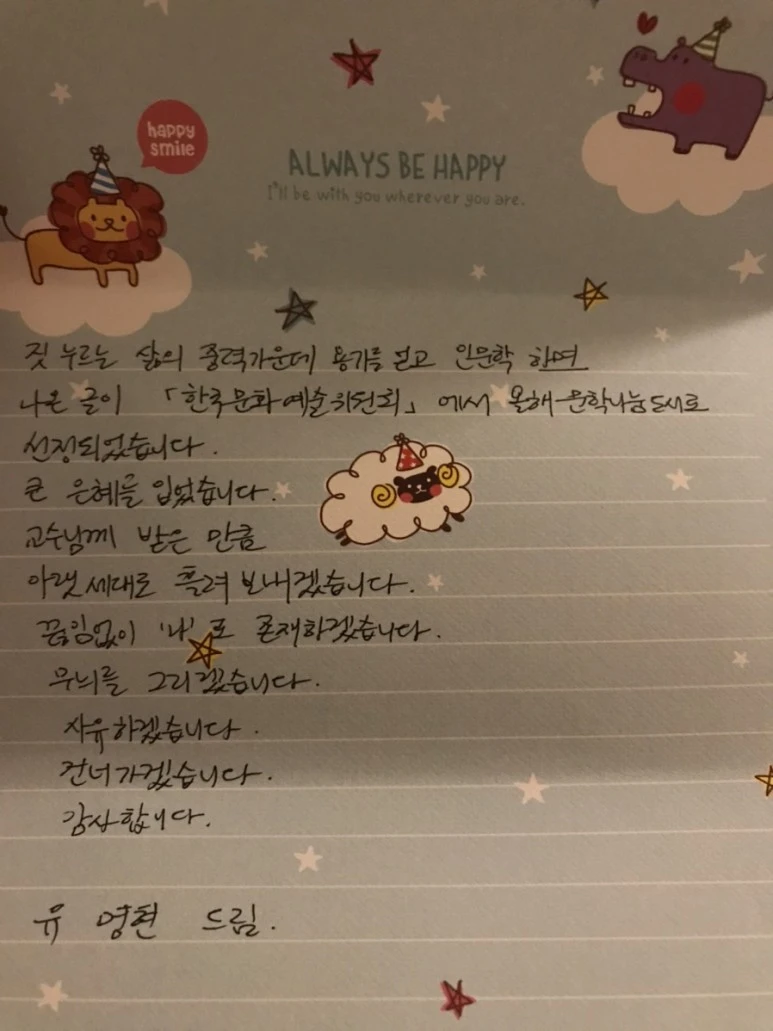 happy
smile
ALWAYS BE HAPPY
I'll be with you wherever you are.
짓누르는 삶의 중력가운데 용기를 얻고 인문학 하며
나온 글이 「한국문화예술위원회」에서 올해 문학나눔도서로
선정되었습니다.
큰 은혜를 입었습니다.
교수님께 받은 만큼
아랫세대로 흘려 보내겠습니다.
끊임없이 '나'로 존재하겠습니다.
무늬를 그리겠습니다.
사유하겠습니다.
건너가겠습니다.
감사합니다.
유 영현 드림.